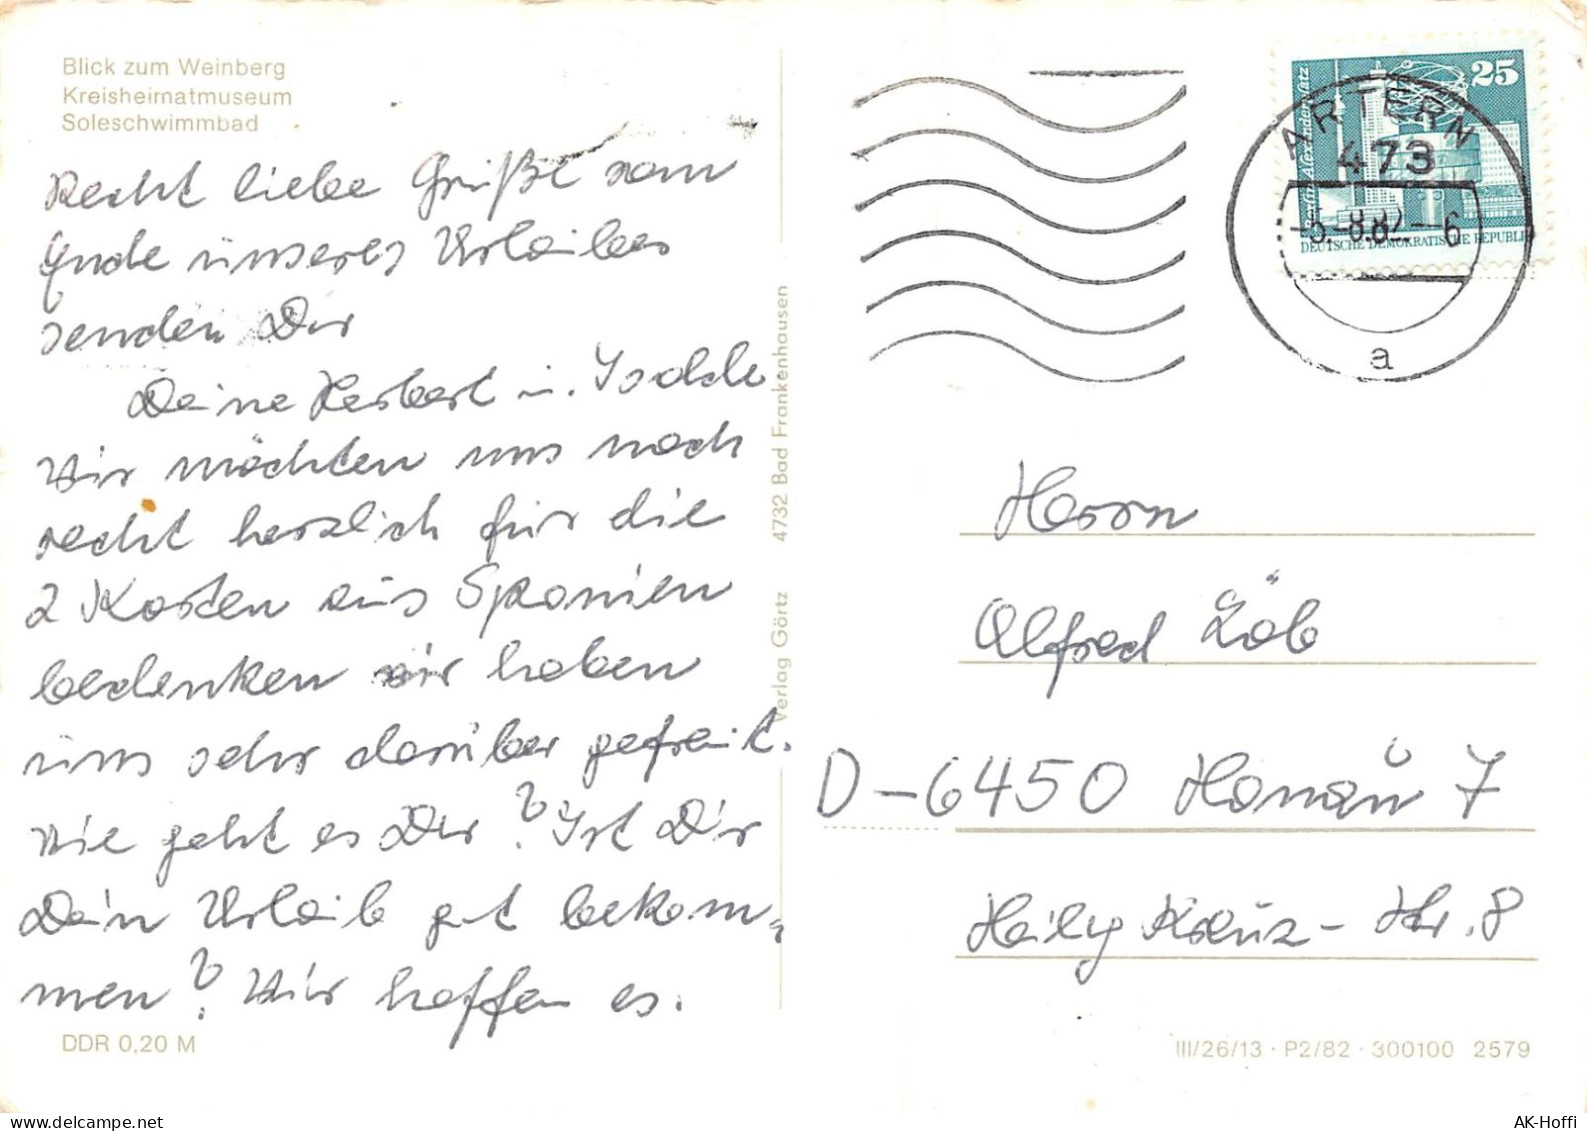 Blick zum Weinberg
Kreisheimatmuseum
Soleschwimmbad
Recht liebe Grüße vom
Ende unseres Urlaubes
senden Dir
Deine Herbert u. Isolde
Wir möchten uns noch
recht herzlich für die
2 Karten aus Spanien
bedanken wir haben
uns sehr darüber gefreut.
Wie geht es Dir? Ist Dir
Dein Urlaub gut bekom-
men? Wir hoffen es.
DDR 0,20 M
Verlag Görtz 4732 Bad Frankenhausen
25
Berlin, Alexanderplatz
DEUTSCHE DEMOKRATISCHE REPUBLIK
ARTERN
473
-5.-8.82--6
a
Herrn
Alfred Löb
D-6450 Hanau 7
Heilig Kreuz-Str. 8
III/26/13 · P2/82 · 300100 2579
AK-Hoffi